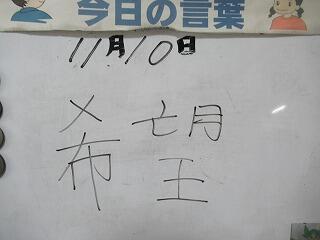 今日の言葉
11月10日
希望